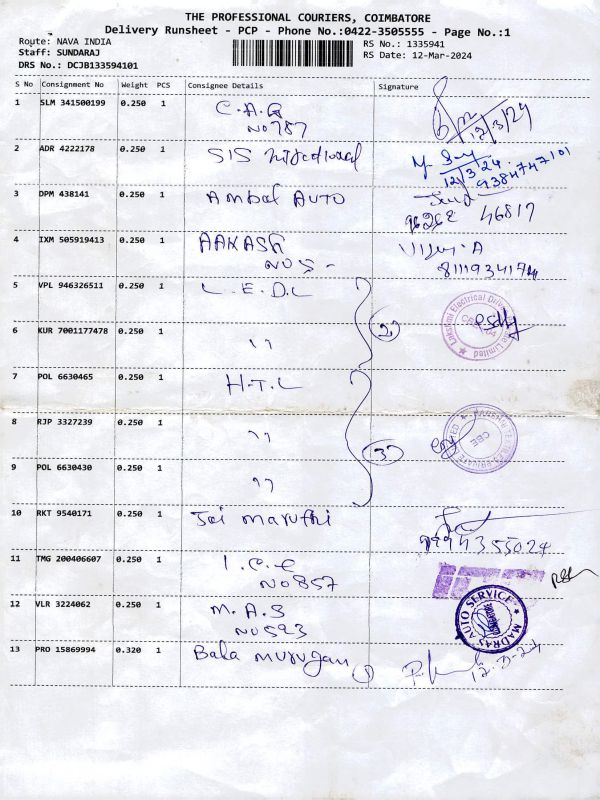 THE PROFESSIONAL COURIERS, COIMBATORE
Delivery Runsheet - PCP - Phone No.:0422-3505555 - Page No.:1
Route: NAVA INDIA
RS No.: 1335941
Staff: SUNDARAJ
RS Date: 12-Mar-2024
DRS No.: DCJB133594101
S No Consignment No Weight PCS Consignee Details Signature
1 SLM 341500199 0.250 1 C.A.G
NO 787
12/3/24
2 ADR 4222178 0.250 1 SIS
12/3/24
9384747101
3 DPM 438141 0.250 1 Ambal AUTO
46817
4 IXM 505919413 0.250 1 AAKASH
NO 5 -
5 VPL 946326511 0.250 1 L.E.D.L
2
Lakshmi Electrical Limited
6 KUR 7001177478 0.250 1 ''
7 POL 6630465 0.250 1 H.T.L
8 RJP 3327239 0.250 1 ''
3
CBE
9 POL 6630430 0.250 1 ''
10 RKT 9540171 0.250 1 Jai maruthi
11 TMG 200406607 0.250 1 NO 857
12 VLR 3224062 0.250 1 M.A.S
NO 593
MADRAS AUTO SERVICE
13 PRO 15869994 0.320 1 Bala murugan
1
12-3-24